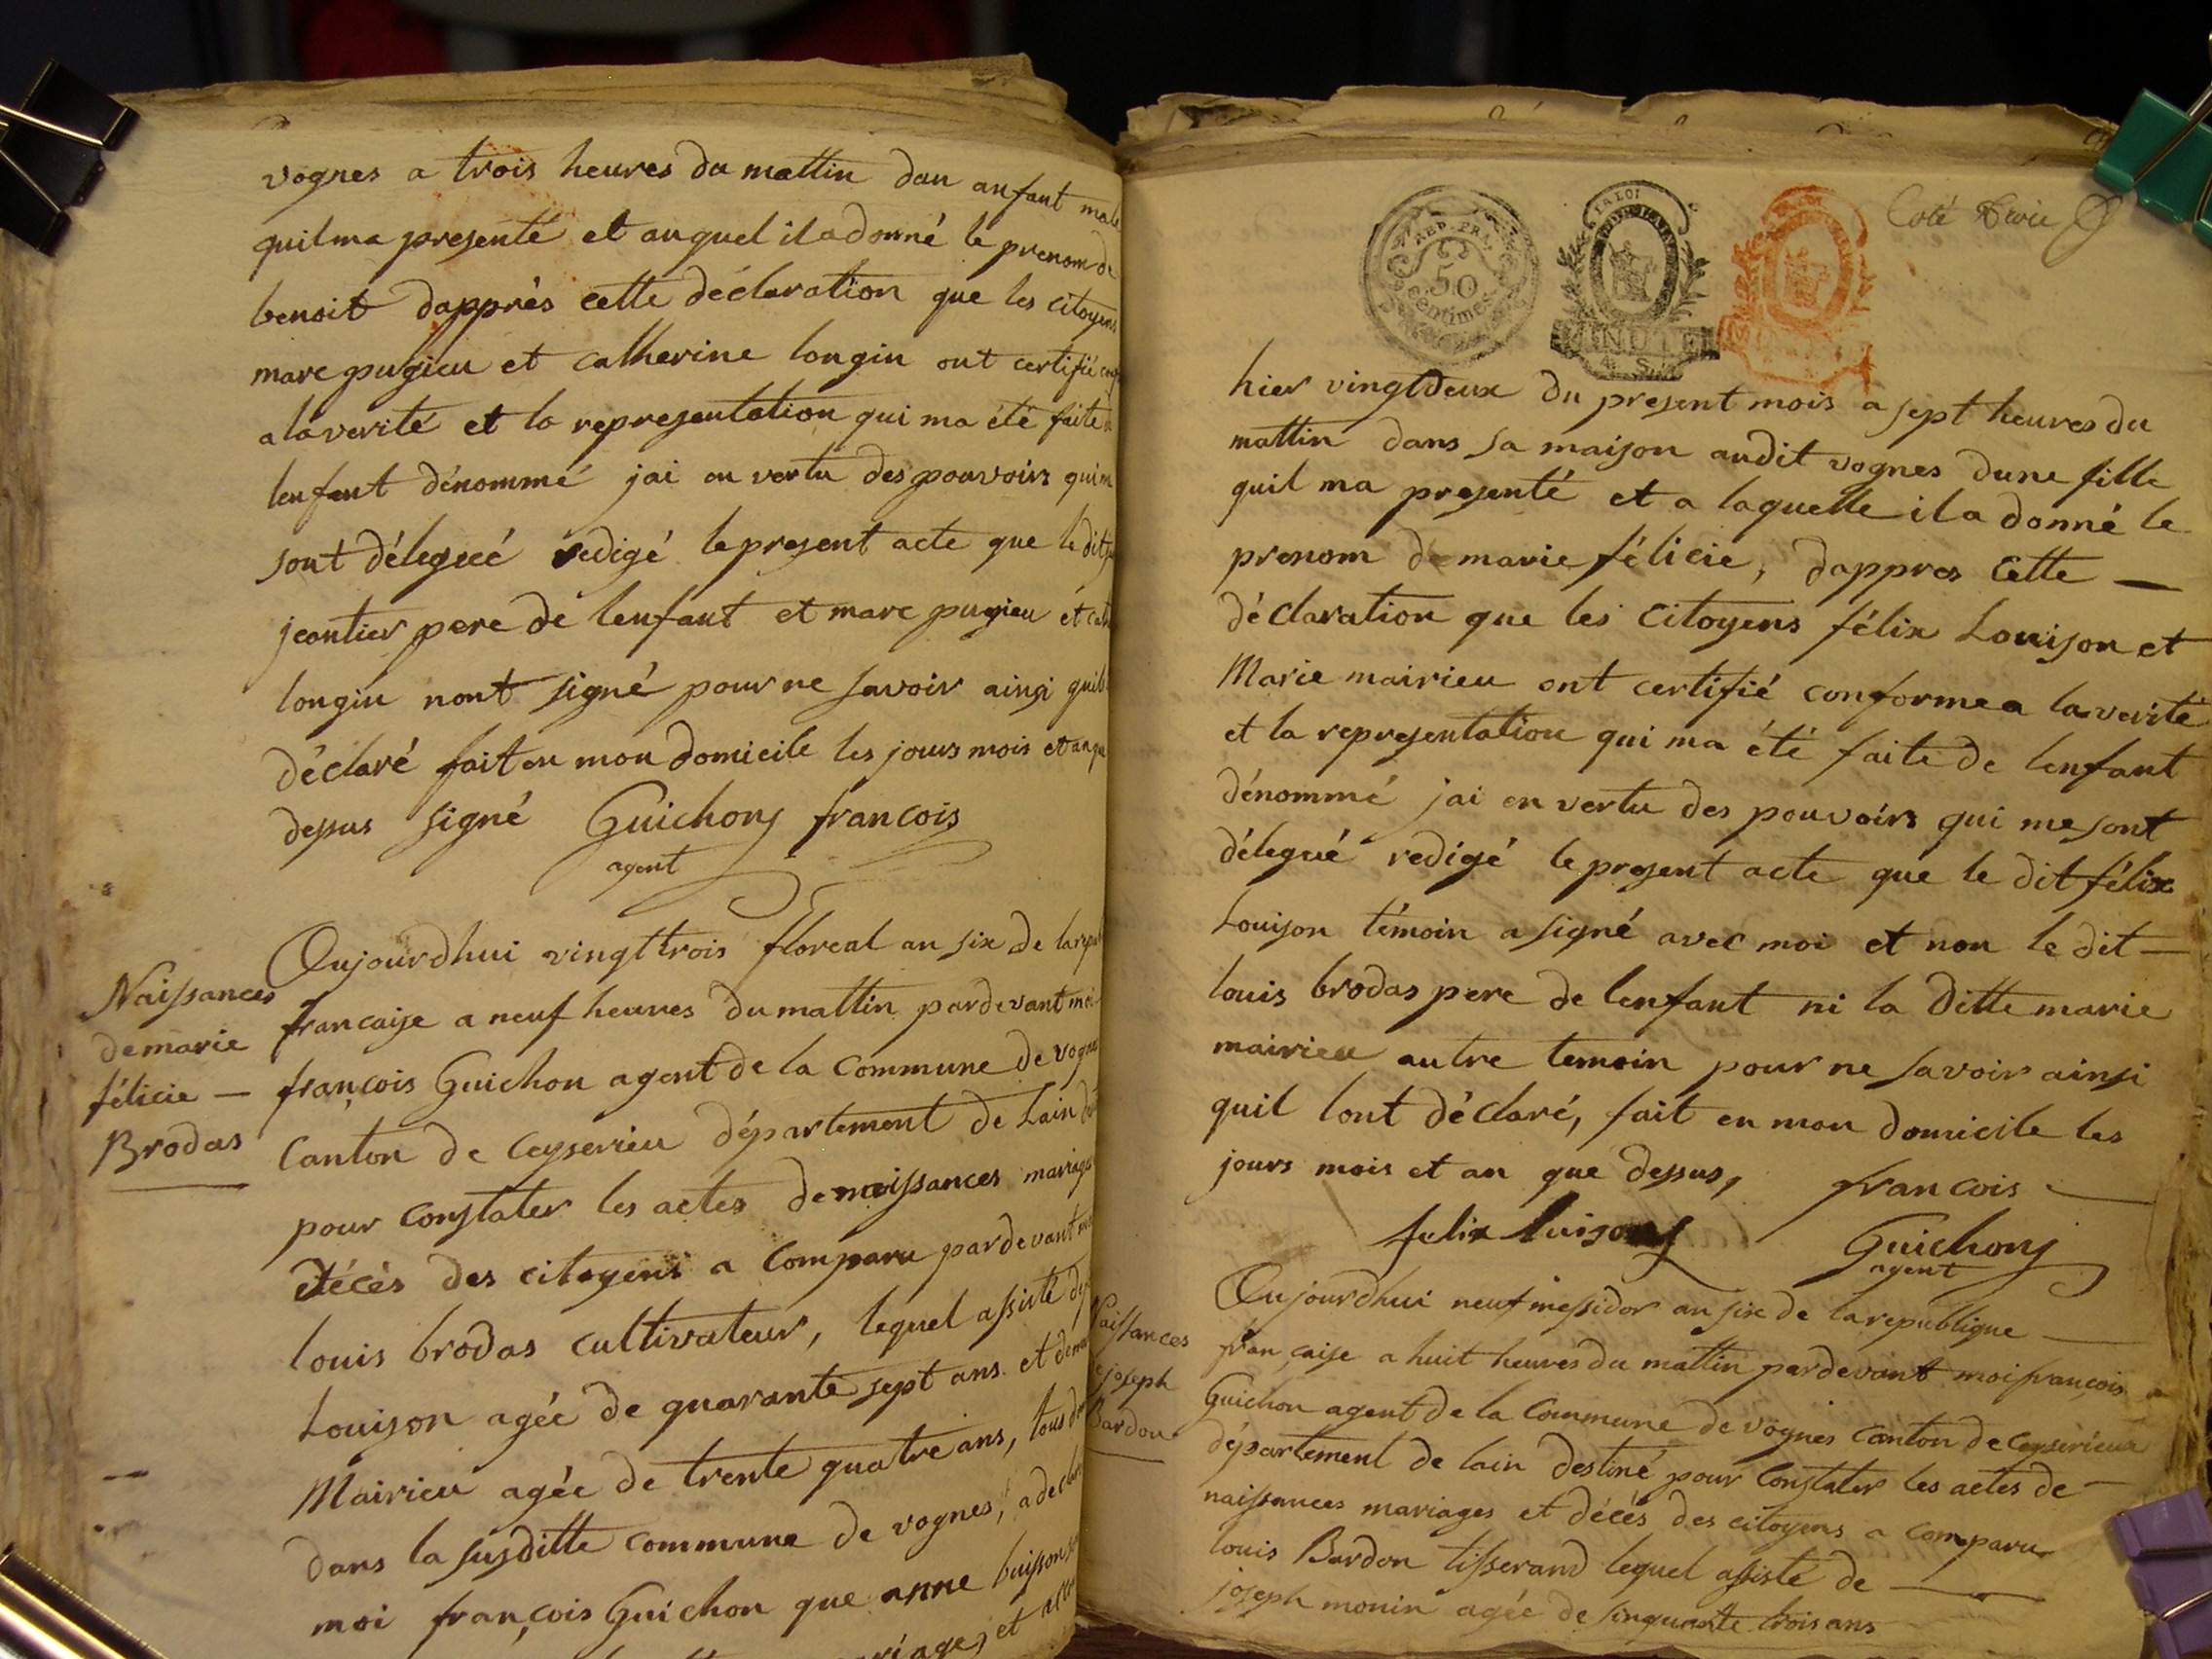 vognes a trois heures du mattin dun anfant male
quil ma presenté et auquel il a donné le prenom de
benoit dapprès cette déclaration que les citoyens
marc pugieu et catherine longin ont certifié
a la verité et la representation qui ma été faite
lenfant dénommé jai en vertu des pouvoirs qui m
sont délegué redigé le present acte que le dit
jeantier pere de lenfant et marc pugieu et
longin nont signé pour ne savoir ainsi quil
déclaré fait en mon domicile les jours mois et an que
dessus signé Guichon francois
agent
Naissances
de marie
félicie —
Brodas
Aujourdhui vingt trois floreal an six de la
francaise a neuf heures du mattin pardevant moi
françois Guichon agent de la Commune de vognes
Canton de Ceyserieu département de Lain
pour constater les actes de naissances mariages
décès des citoyens a Comparu pardevant
louis brodas cultivateur, lequel assisté
Louison agée de quarante sept ans et
Mairieu agée de trente quatre ans, tous
dans la susditte commune de vognes, a
moi françois Guichon que anne buisson
et
Coté
REP. FRA.
50
centimes
LA LOI
MINUTE
hier vingt deux du present mois a sept heures du
mattin dans sa maison audit vognes dune fille
quil ma presenté et a laquelle il a donné le
prenom de marie félicie, dappres cette —
déclaration que les citoyens félix Louison et
Marie mairieu ont certifié conforme a la verité
et la representation qui ma été faite de lenfant
dénommé jai en vertu des pouvoirs qui me sont
délegué redigé le present acte que le dit félix
Louison témoin a signé avec moi et non le dit —
louis brodas pere de lenfant ni la ditte marie
mairieu autre temoin pour ne savoir ainsi
quil lont déclaré, fait en mon domicile les
jours mois et an que dessus, francois —
felix luison Guichon
agent
Naissances
de joseph
Bardon
Aujourdhui neuf messidor an six de la republique —
française a huit heures du mattin pardevant moi françois
Guichon agent de la Commune de vognes Canton de Ceyserieux
département de lain destiné pour Constater les actes de —
naissances mariages et décès des citoyens a Comparu
louis Bardon tisserand lequel assisté de —
joseph monin agée de sinquante trois ans